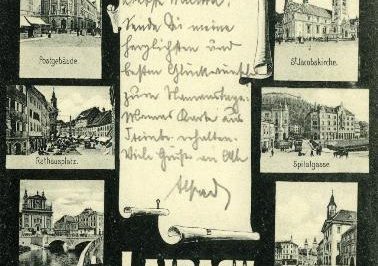 Sende Dir meine
herzlichsten und
besten Glückwünsche
zum Namenstage.
Karte aus
erhalten.
Viele Grüße an Alle
Alfred
Postgebäude.
St Jacobskirche.
Rathausplatz.
Spitalgasse.
LAIBACH